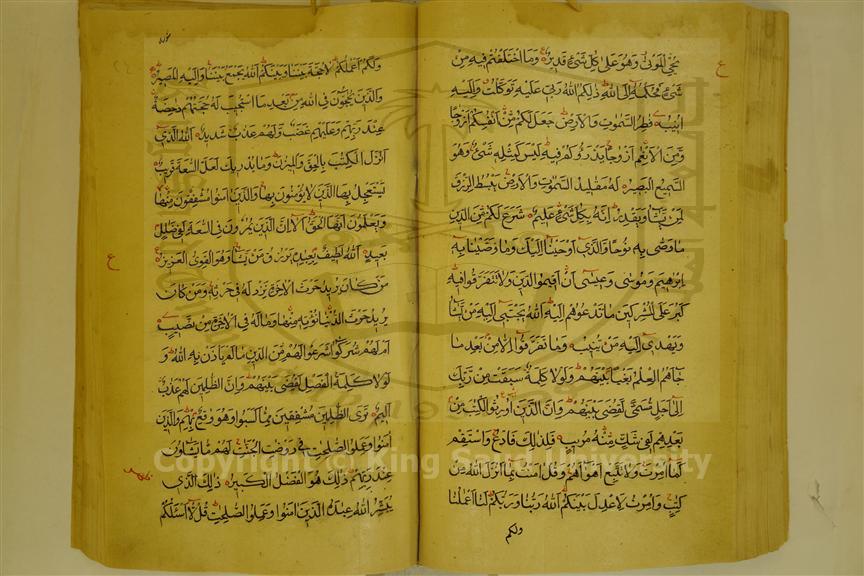 يحي الموتى وهو على كل شئ قدير وما اختلفتم فيه من
شئ فحكمه الى الله ذلكم الله ربي عليه توكلت واليه
انيب فاطر السموت والارض جعل لكم من انفسكم ازواجا
ومن الانعام ازواجا يذرؤكم فيه ليس كمثله شئ وهو
السميع البصير له مقاليد السموت والارض يبسط الرزق
لمن يشا ويقدر انه بكل شئ عليم شرع لكم من الدين
ما وصى به نوحا والذي اوحينا اليك وما وصينا به
ابرهيم وموسى وعيسى ان اقيموا الدين ولا تتفرقوا فيه
كبر على المشركين ما تدعوهم اليه الله يجتبي اليه من يشا
ويهدي اليه من ينيب وما تفرقوا الا من بعد ما
جاهم العلم بغيا بينهم ولولا كلمة سبقت من ربك
الى اجل مسمى لقضى بينهم وان الذين اورثوا الكتب من
بعدهم لفي شك منه مريب فلذلك فادع واستقم
كما امرت ولا تتبع اهواهم وقل امنت بما انزل الله من
كتب وامرت لاعدل بينكم الله ربنا وربكم لنا اعملنا
ولكم
ولكم اعملكم لا حجة بيننا وبينكم الله يجمع بيننا واليه المصير
والذين يحاجون في الله من بعد ما استجيب له حجتهم داحضة
عند ربهم وعليهم غضب ولهم عذاب شديد الله الذي
انزل الكتب بالحق والميزن وما يدريك لعل الساعة قريب
يستعجل بها الذين لا يؤمنون بها والذين امنوا مشفقون منها
ويعلمون انها الحق الا ان الذين يمرون في الساعة لفي ضلل
بعيد الله لطيف بعباده يرزق من يشا وهو القوي العزيز
من كان يريد حرث الاخرة نزد له في حرثه ومن كان
يريد حرث الدنيا نؤته منها وما له في الاخرة من نصيب
ام لهم شركؤا شرعوا لهم من الدين ما لم ياذن به الله و
لولا كلمة الفصل لقضى بينهم وان الظلمين لهم عذاب
اليم ترى الظلمين مشفقين مما كسبوا وهو واقع بهم والذين
امنوا وعملوا الصلحت في روضت الجنت لهم ما يشاؤن
عند ربهم ذلك هو الفضل الكبير ذلك الذي
يبشر الله عباده الذين امنوا وعملوا الصلحت قل لا اسئلكم
Copyright © King Saud University